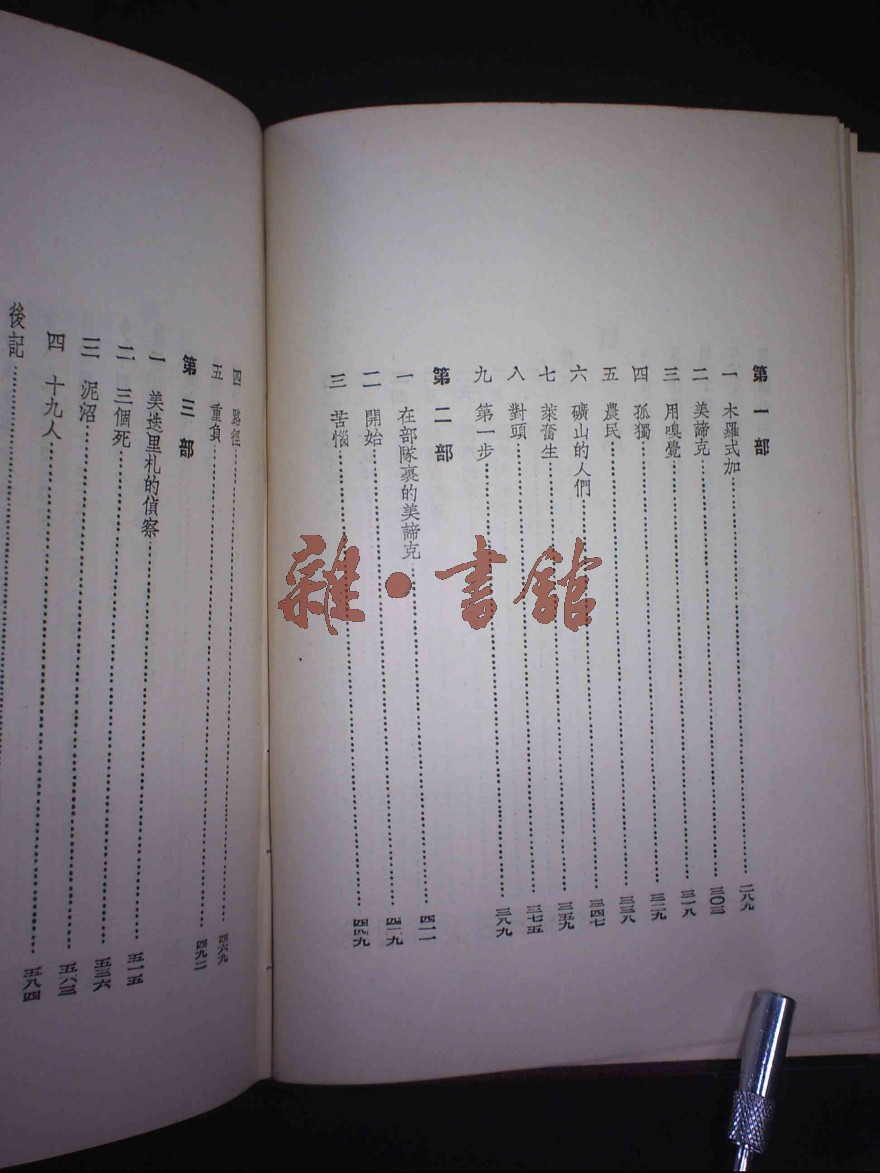 第一部
一 木羅式加 二八九
二 美諦克 三〇三
三 用嗅覺 三一八
四 孤獨 三二九
五 農民 三三八
六 礦山的人們 三四七
七 萊奮生 三五九
八 對頭 三七五
九 第一步 三八九
第二部
一 在部隊裏的美諦克 四一一
二 開始 四二九
三 苦惱 四四九
四 路徑 四六九
五 重負 四九二
第三部
一 美迭里札的偵察 五一五
二 三個死 五三六
三 泥沼 五六三
四 十九人 五八四
後記
雜·書館